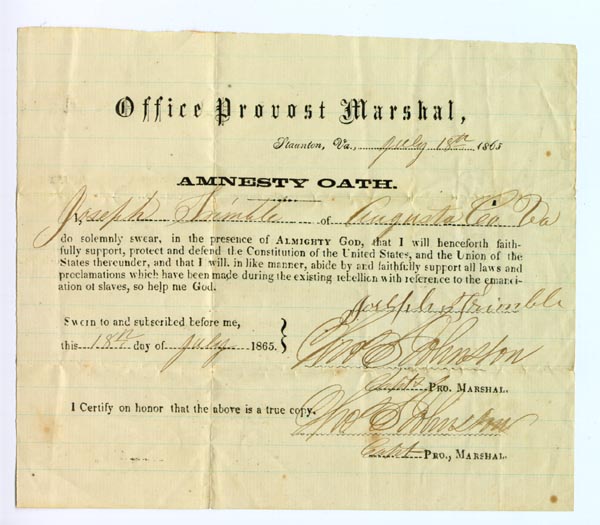 Office Provost Marshal,
Staunton, Va., July 18th 1865
AMNESTY OATH.
I, Joseph Trimble of Augusta Co. Va
do solemnly swear, in the presence of ALMIGHTY GOD, that I will henceforth faith-
fully support, protect and defend the Constitution of the United States, and the Union of the
States thereunder, and that I will, in like manner, abide by and faithfully support all laws and
proclamations which have been made during the existing rebellion with reference to the emanci-
ation of slaves, so help me God.
Joseph Trimble
SWORN to and subscribed before me,
this 18th day of July 1865.
Tho S Johnston
Capt PRO. MARSHAL.
I Certify on honor that the above is a true copy.
Tho S Johnston
Capt PRO, MARSHAL.